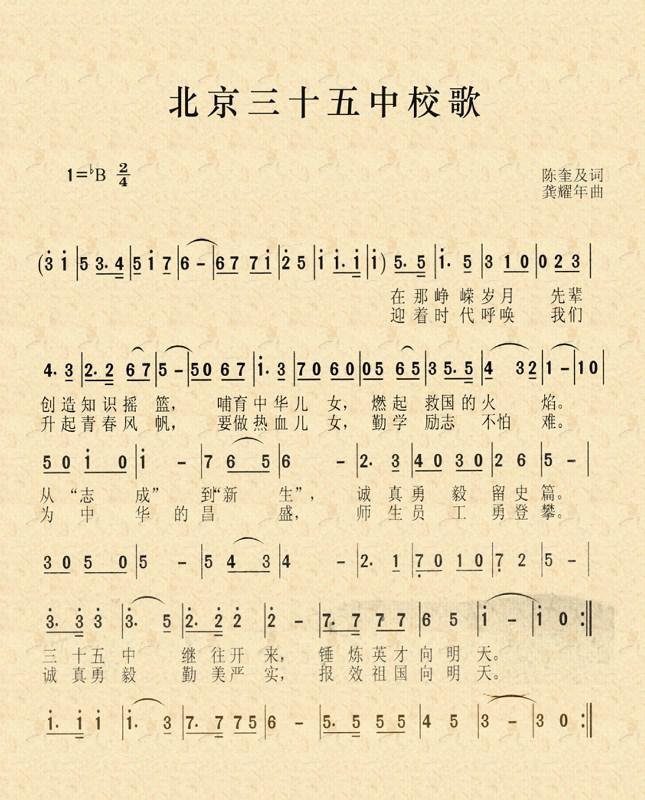 北京三十五中校歌
1=♭B 2/4
陈奎及词
龚耀年曲
(3̇ 1̇ | 5 3.4 | 5 1̇ 7 | 6 - | 6 7 7 1̇ | 2̇ 5 | 1̇ 1̇.1̇ | 1̇) | 5. 5 | 1̇. 5 | 3 1 0 | 0 2 3 |
在那峥嵘岁月 先辈
迎着时代呼唤 我们
4. 3 | 2. 2 6 7 | 5 - | 5 0 6 7 | 1̇. 3 | 7 0 6 0 | 0 5 6 5 | 3 5. 5 | 4 3 2 | 1 - | 1 0 |
创造知识摇篮， 哺育中华儿女，燃起 救国的火 焰。
升起青春风帆， 要做热血儿女，勤学 励志 不怕 难。
5 0 1̇ 0 | 1̇ - | 7 6 5 | 6 - | 2. 3 | 4 0 3 0 | 2 6 | 5 - |
从“志 成” 到“新 生”， 诚真勇毅 留史篇。
为 中 华的昌 盛， 师生员工 勇登攀。
3 0 5 0 | 5 - | 5 4 3 | 4 - | 2. 1 | 7̣ 0 1 0 | 7̣ 2 | 5 - |
3̇. 3̇ 3̇ | 3̇. 5 | 2̇. 2̇ 2̇ | 2̇ - | 7. 7 7 7 | 6 5 | 1̇ - | 1̇ 0 :‖
三十五中 继往开来，锤炼英才向明天。
诚真勇毅 勤美严实，报效祖国向明天。
1̇. 1̇ 1̇ | 1̇. 3 | 7. 7 7 5 | 6 - | 5. 5 5 5 | 4 5 | 3 - | 3 0 :‖